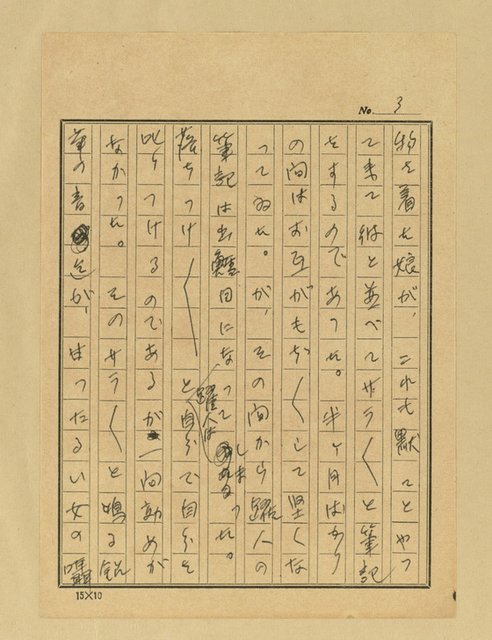 No. 3
物を着た娘が、これも黙つとやつ
て来て彼と並べてサラ〱と筆記
をするのであつた。半ヶ月ばかり
の間はお互がもぢ〱して堅くな
つてゐた。が、その間から躍人の
筆記は出鱈目になつてしまつた。
落ちつけ〱――と躍人は自分で自分を
叱りつけるのであるが一向効めが
なかつた。そのサラ〱と鳴る鉛
筆の音迄が、甘つたるい女の囁
15×10